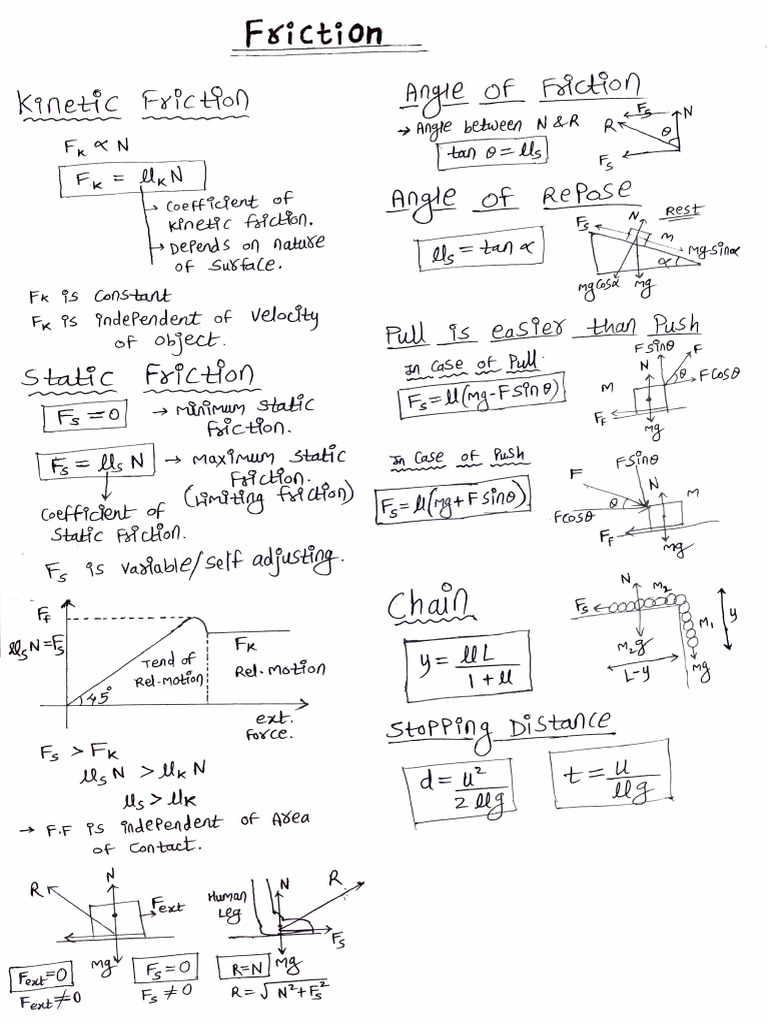 Friction
Kinetic Friction
Fk ∝ N
Fk = μk N
→ Coefficient of
kinetic friction.
→ Depends on nature
of surface.
Fk is constant
Fk is independent of velocity
of object.
Static Friction
Fs = 0 → minimum static
friction.
Fs = μs N → maximum static
friction.
(Limiting friction)
Coefficient of
static friction.
Fs is variable/self adjusting.
Ff
μsN = Fs
Fk
Tend of
Rel-motion
Rel-motion
45°
ext.
force.
Fs > Fk
μs N > μk N
μs > μk
→ F.F is independent of Area
of contact.
R
N
Fext
Mg
Fext = 0
Fext ≠ 0
Fs = 0
Fs ≠ 0
Human
Leg
N
R
Fs
Mg
R = N
R = √N² + Fs²
Angle of Friction
→ Angle between N & R
tan θ = μs
Fs
N
R
θ
Fs
Angle of Repose
μs = tan α
Fs
N
Rest
M
Mg sinα
α
Mg cosα
Mg
Pull is easier than Push
In case of Pull
Fs = μ(Mg - F sin θ)
F sinθ
F
N
θ
F cosθ
M
Ff
Mg
In case of Push
Fs = μ(Mg + F sinθ)
F sinθ
F
N
M
θ
F cosθ
Ff
Mg
Chain
y = μL / 1 + μ
N
M2
Fs
M1
y
M2g
L-y
Mg
Stopping Distance
d = u² / 2μg
t = u / μg